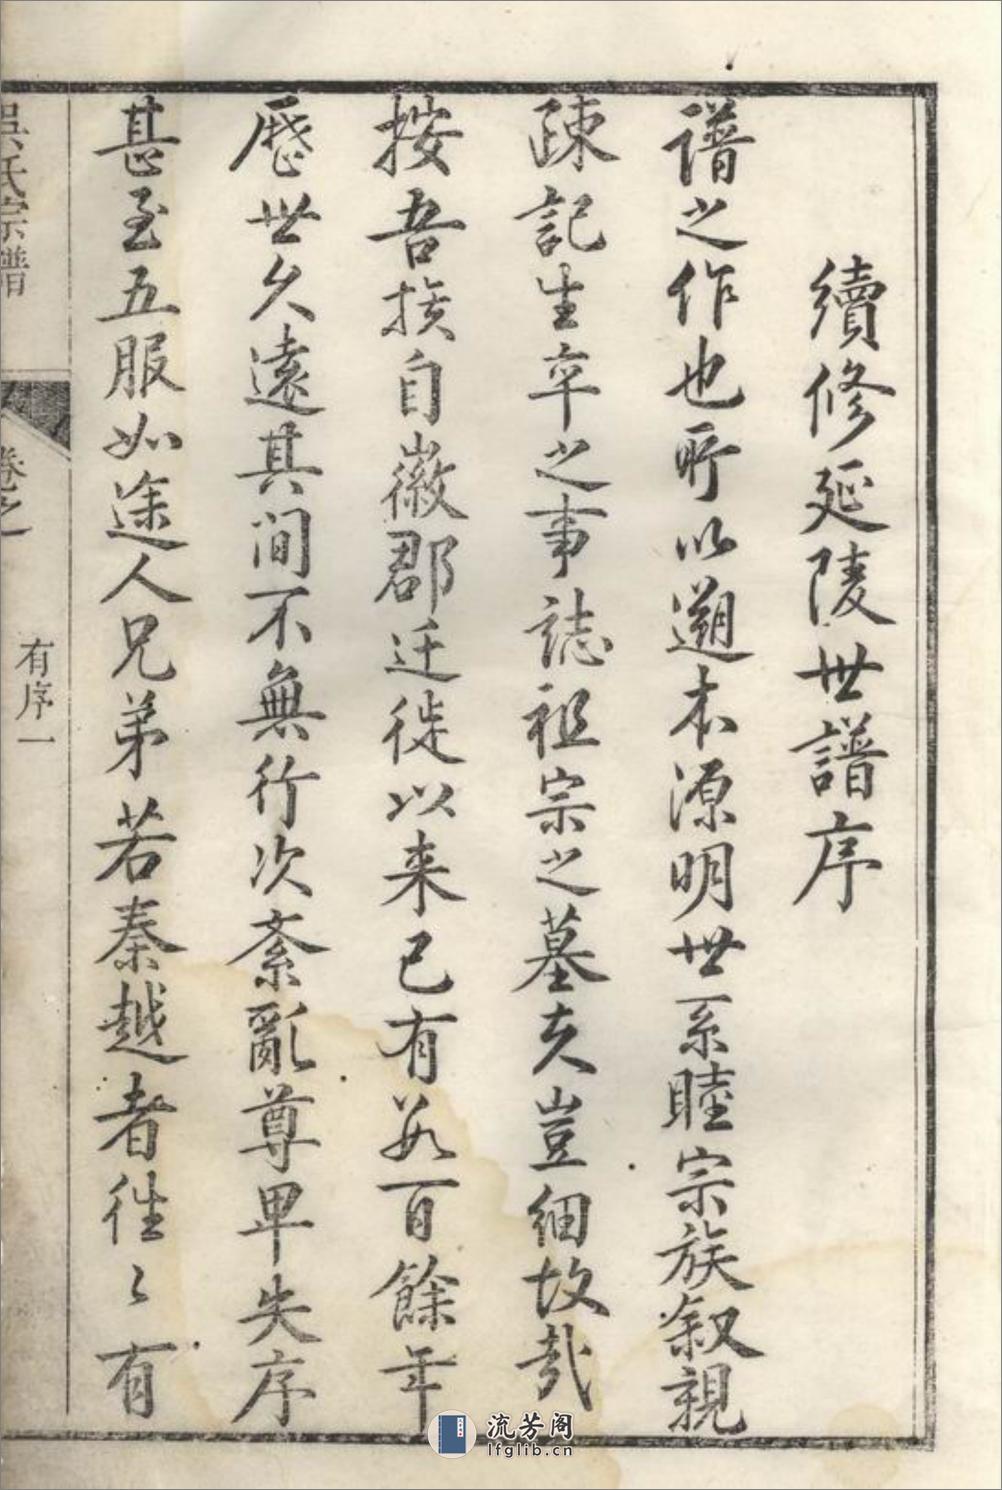 續修延陵世譜序
譜之作也所以遡本源明世系睦宗族叙親
疎記生卒之事誌祖宗之墓夫豈細故哉
按吾族自徽郡迁徙以来已有数百餘年
歷世久遠其间不無行次紊亂尊卑失序
甚至五服如途人兄弟若秦越者往〻有
吳氏宗譜
卷之一
有序一
流芳阁
lfglib.cn